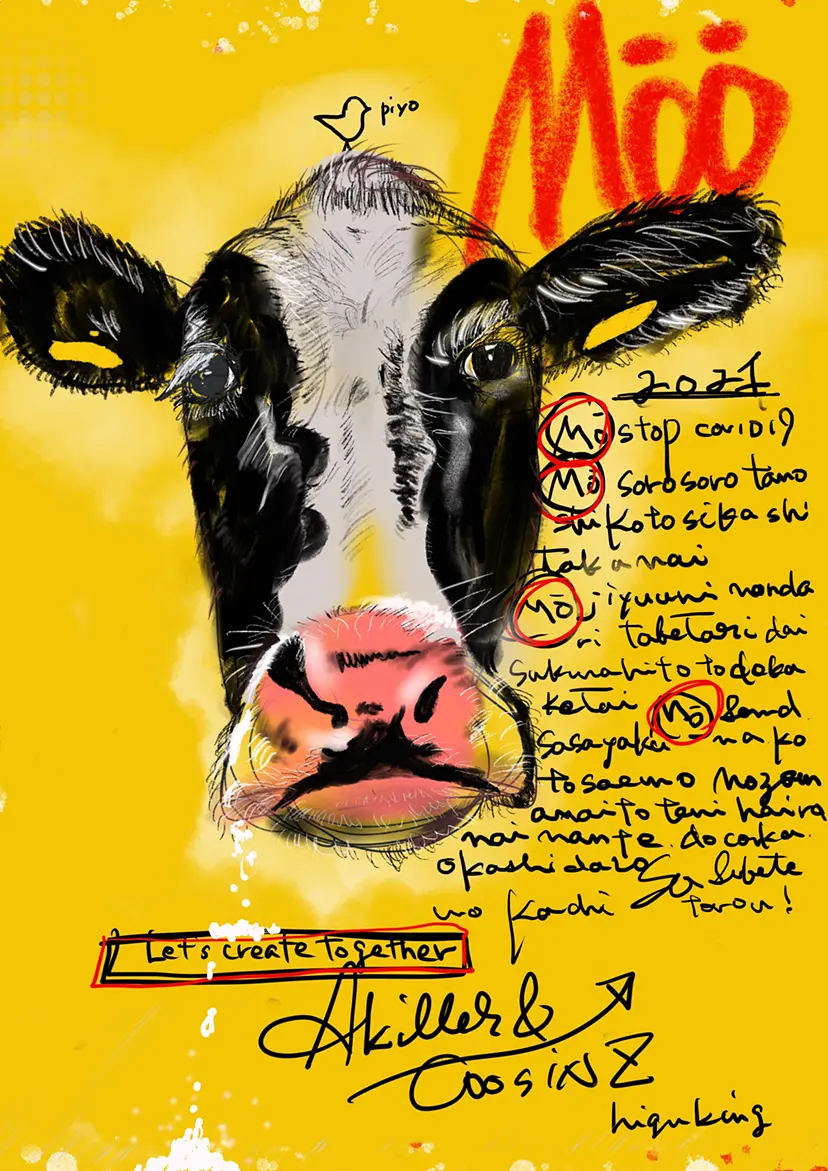 Möö
piyo
2021
Mō stop covid19
Mō sorosoro tano
shikoto sika shi
takunai
Mō jiyuuni nonda
ri tabetari dai
sukinahito to deka
ketai Mō
sasayaka na ko
tosaemo nozom
amaito teni haira
nai nante docoka
okashidaro
no kachi torou!
Let's create together
Akiller &
CoosinZ
higuking